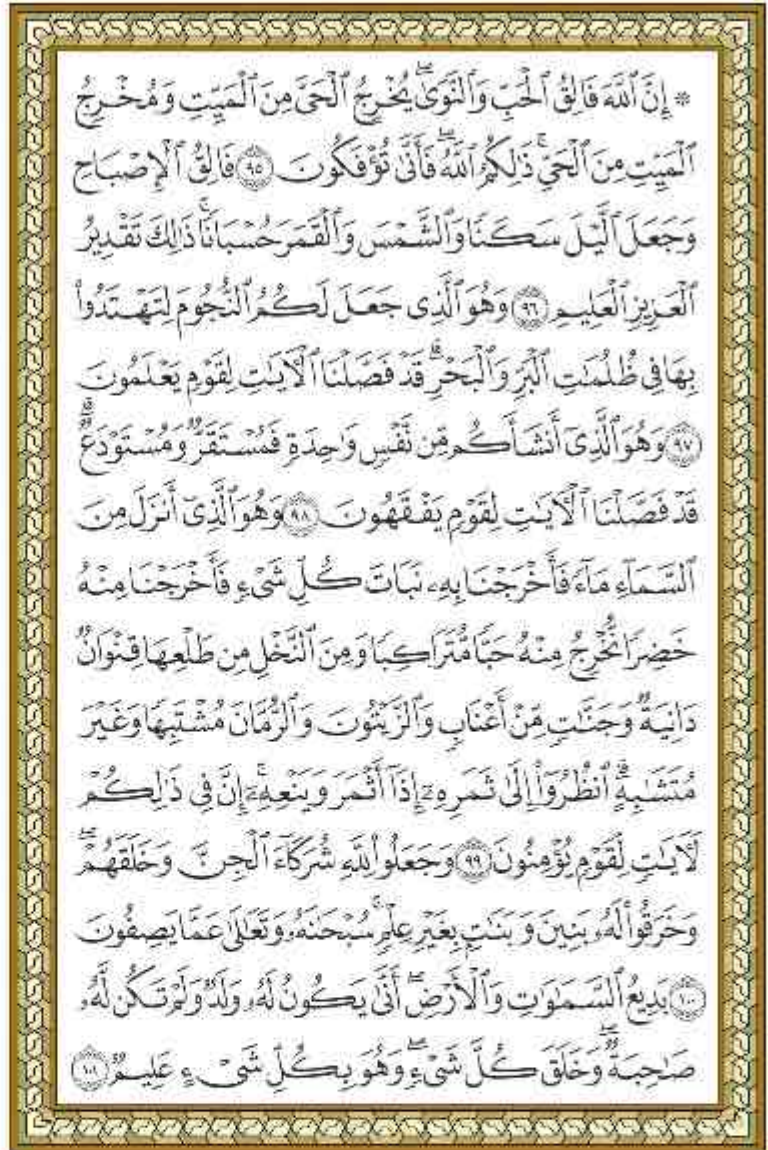 ۞ إِنَّ ٱللَّهَ فَالِقُ ٱلْحَبِّ وَٱلنَّوَىٰۖ يُخْرِجُ ٱلْحَىَّ مِنَ ٱلْمَيِّتِ وَمُخْرِجُ
ٱلْمَيِّتِ مِنَ ٱلْحَىِّۚ ذَٰلِكُمُ ٱللَّهُۖ فَأَنَّىٰ تُؤْفَكُونَ ٩٥ فَالِقُ ٱلْإِصْبَاحِ
وَجَعَلَ ٱلَّيْلَ سَكَنًا وَٱلشَّمْسَ وَٱلْقَمَرَ حُسْبَانًاۚ ذَٰلِكَ تَقْدِيرُ
ٱلْعَزِيزِ ٱلْعَلِيمِ ٩٦ وَهُوَ ٱلَّذِى جَعَلَ لَكُمُ ٱلنُّجُومَ لِتَهْتَدُوا۟
بِهَا فِى ظُلُمَٰتِ ٱلْبَرِّ وَٱلْبَحْرِۗ قَدْ فَصَّلْنَا ٱلْءَايَٰتِ لِقَوْمٍ يَعْلَمُونَ
٩٧ وَهُوَ ٱلَّذِىٓ أَنشَأَكُم مِّن نَّفْسٍ وَٰحِدَةٍ فَمُسْتَقَرٌّ وَمُسْتَوْدَعٌۗ
قَدْ فَصَّلْنَا ٱلْءَايَٰتِ لِقَوْمٍ يَفْقَهُونَ ٩٨ وَهُوَ ٱلَّذِىٓ أَنزَلَ مِنَ
ٱلسَّمَآءِ مَآءً فَأَخْرَجْنَا بِهِۦ نَبَاتَ كُلِّ شَىْءٍ فَأَخْرَجْنَا مِنْهُ
خَضِرًا نُّخْرِجُ مِنْهُ حَبًّا مُّتَرَاكِبًا وَمِنَ ٱلنَّخْلِ مِن طَلْعِهَا قِنْوَانٌ
دَانِيَةٌ وَجَنَّٰتٍ مِّنْ أَعْنَابٍ وَٱلزَّيْتُونَ وَٱلرُّمَّانَ مُشْتَبِهًا وَغَيْرَ
مُتَشَٰبِهٍۗ ٱنظُرُوٓا۟ إِلَىٰ ثَمَرِهِۦٓ إِذَآ أَثْمَرَ وَيَنْعِهِۦٓۚ إِنَّ فِى ذَٰلِكُمْ
لَءَايَٰتٍ لِّقَوْمٍ يُؤْمِنُونَ ٩٩ وَجَعَلُوا۟ لِلَّهِ شُرَكَآءَ ٱلْجِنَّ وَخَلَقَهُمْۖ
وَخَرَقُوا۟ لَهُۥ بَنِينَ وَبَنَٰتٍۭ بِغَيْرِ عِلْمٍۚ سُبْحَٰنَهُۥ وَتَعَٰلَىٰ عَمَّا يَصِفُونَ
١٠٠ بَدِيعُ ٱلسَّمَٰوَٰتِ وَٱلْأَرْضِۖ أَنَّىٰ يَكُونُ لَهُۥ وَلَدٌ وَلَمْ تَكُن لَّهُۥ
صَٰحِبَةٌۖ وَخَلَقَ كُلَّ شَىْءٍۖ وَهُوَ بِكُلِّ شَىْءٍ عَلِيمٌ ١٠١